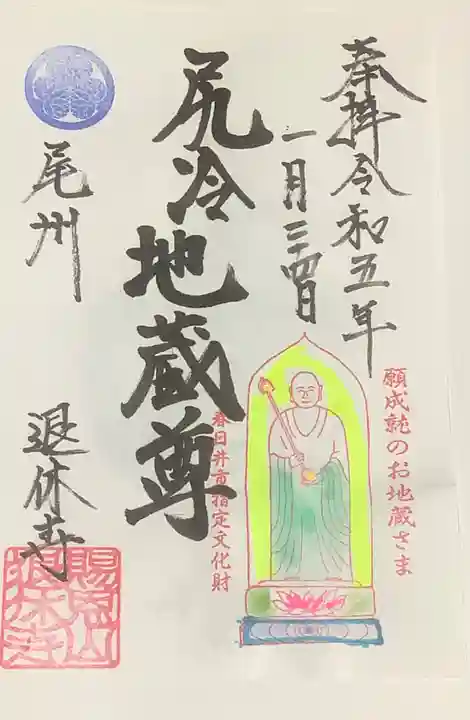 奉拝令和五年
一月二十四日
願成就のお地蔵さま
尻冷地蔵尊
春日井市指定文化財
尾州
退休寺
賜恩山
退休寺